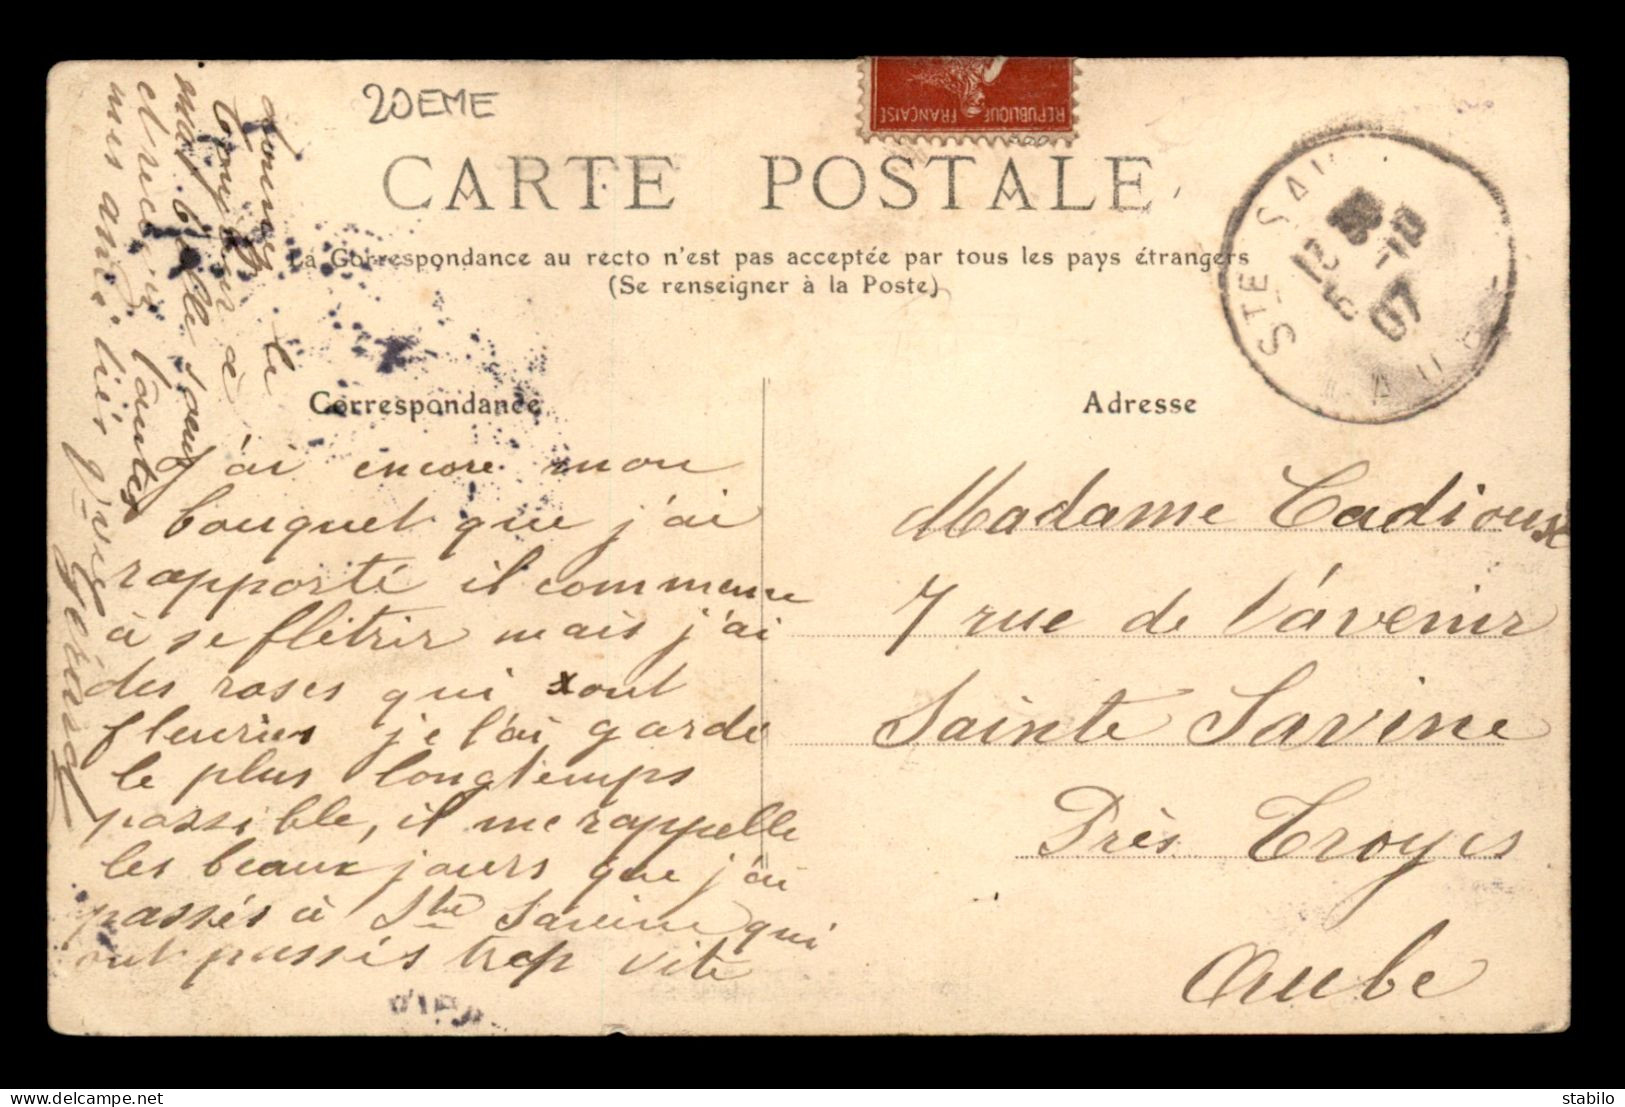 20EME
REPUBLIQUE FRANÇAISE
CARTE POSTALE
La Correspondance au recto n'est pas acceptée par tous les pays étrangers
(Se renseigner à la Poste)
STE SAV
AUBE
07
Correspondance
Adresse
J'ai encore mon
bouquet que j'ai
rapporté il commence
à se flétrir mais j'ai
des roses qui sont
fleuries je l'ai garde
le plus longtemps
possible, il me rappelle
les beaux jours que j'ai
passés à Ste Savine qui
ont passés trop vite
Madame Cadiouse
7 rue de l'avenir
Sainte Savine
Près Troyes
Aube
bonjour à
ma belle sœur
mis
delcampe.net
stabilo